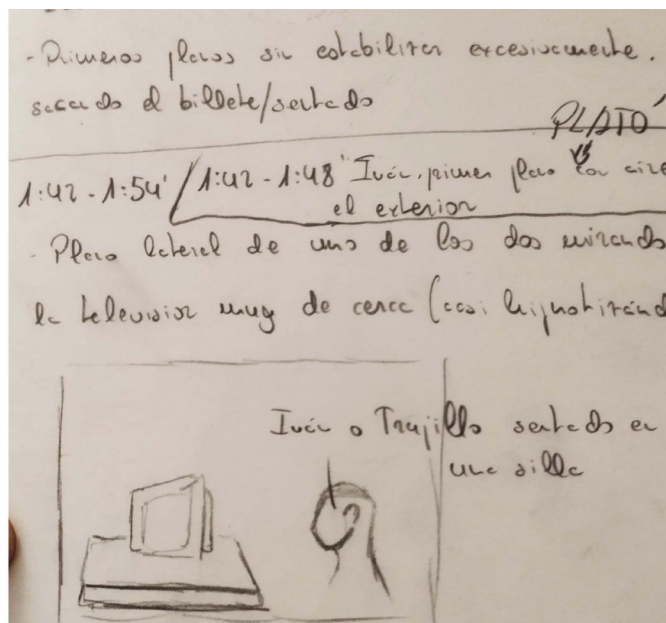 - Primeros planos sin estabilizar excesivamente.
sacando el billete/sentado
PLATÓ
1:42 - 1:54' / 1:42 - 1:48' Iván, primer plano con aire
el exterior
- Plano lateral de uno de los dos mirando
la television muy de cerca (casi hipnotizand
Iván o Trujillo sentado en
una silla